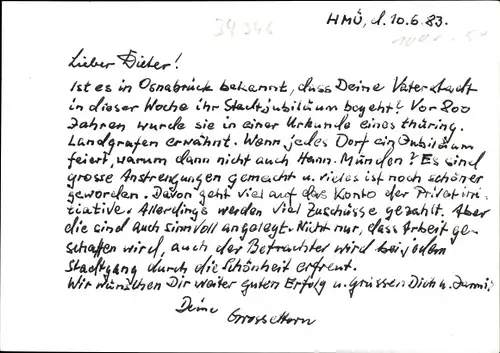 34 346
HMÜ, d. 10.6.83.
Lieber Dieter!
Ist es in Osnabrück bekannt, dass Deine Vaterstadt
in dieser Woche ihr Stadtjubiläum begeht? Vor 800
Jahren wurde sie in einer Urkunde eines thüring.
Landgrafen erwähnt. Wenn jedes Dorf ein Jubiläum
feiert, warum dann nicht auch Hann. Münden? Es sind
grosse Anstrengungen gemacht u. vieles ist noch schöner
geworden. Davon geht viel auf das Konto der Privatini-
tiative. Allerdings werden viel Zuschüsse gezahlt. Aber
die sind auch sinnvoll angelegt. Nicht nur, dass Arbeit ge-
schaffen wird, auch der Betrachter wird bei jedem
Stadtgang durch die Schönheit erfreut.
Wir wünschen Dir weiter guten Erfolg u. grüssen Dich u.
Deine
Grosseltern